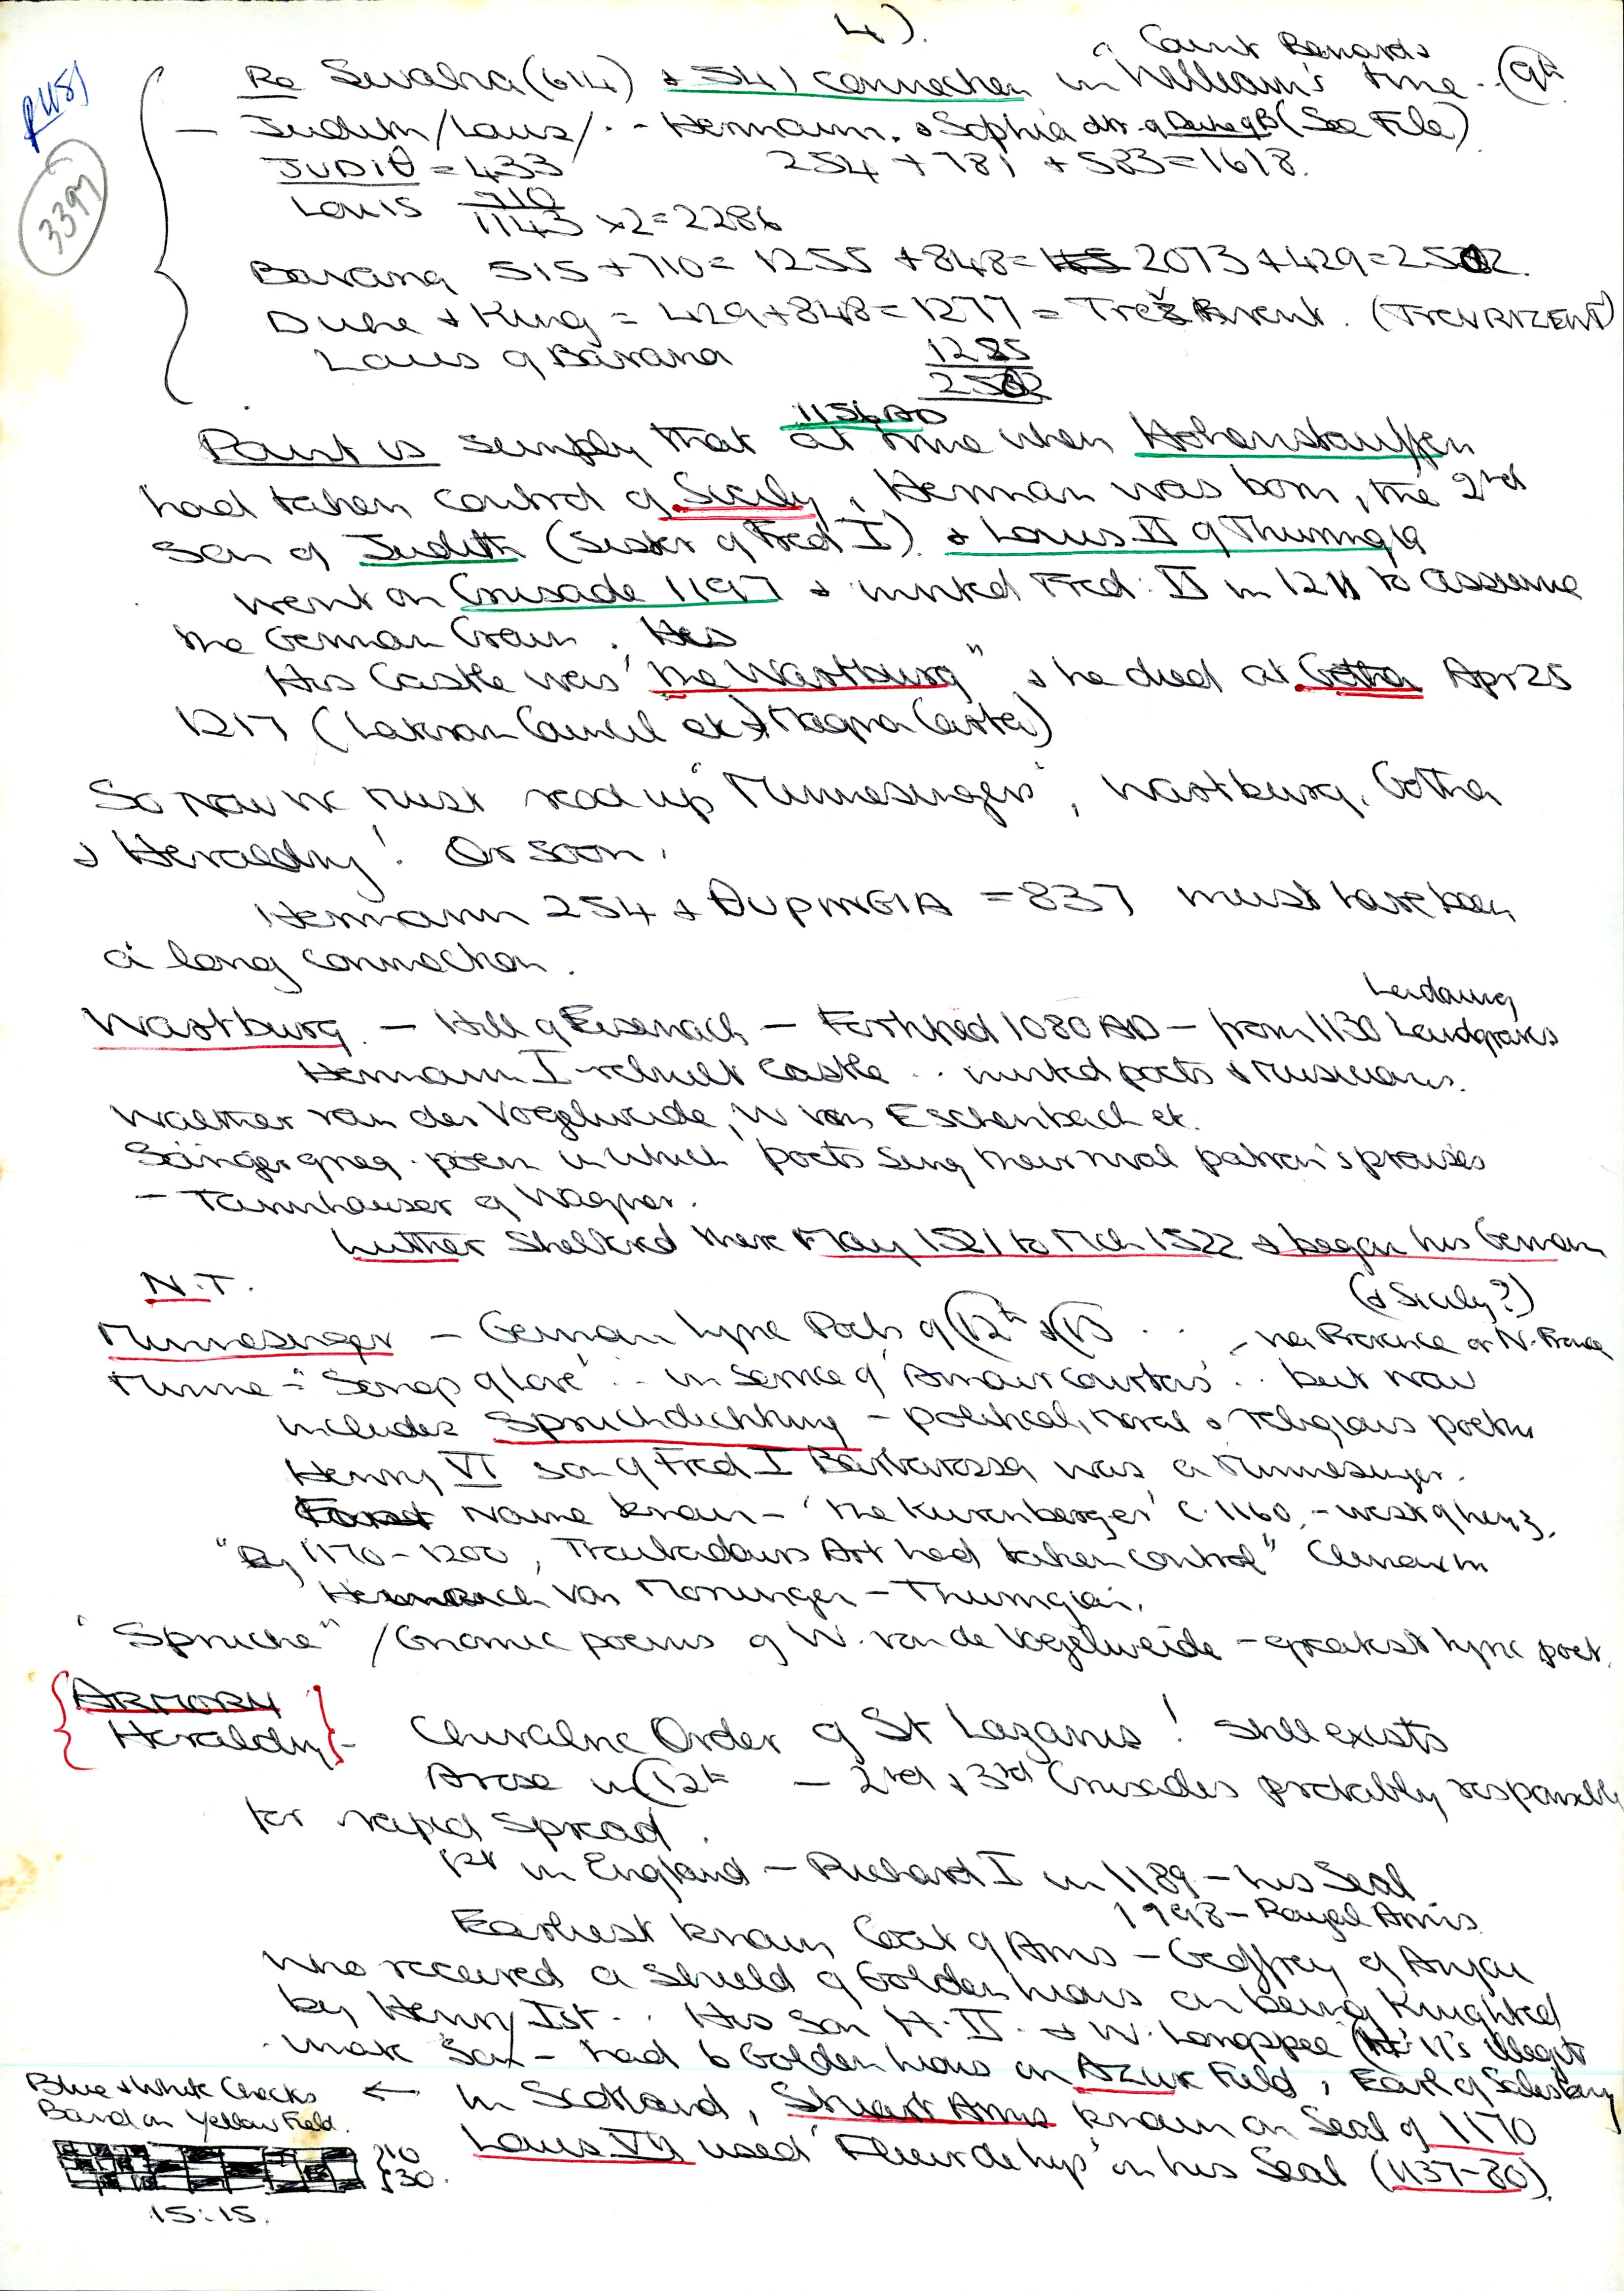 4).
Count Bernard's
Re Swaha (614) + 541 connection in William's time .. (9th
R1181
3397
— Judith/Louis/ .. - Hermann. & Sophia dtr. of Duke of B (See File)
JUDIθ = 433 254 + 781 + 583 = 1618.
Louis 710
1143 x2 = 2286
Bavaria 515 + 710 = 1255 + 848 = 2073 + 429 = 2502.
Duke & King = 429 + 848 = 1277 = Trevrent. (TREVRIZENT)
Louis of Bavaria 1225
2502
1156 AD
Point is simply that at time when Hohenstauffen
had taken control of Sicily, Herman was born, the 2nd
son of Judith (Sister of Fred I) & Louis II of Thuringia
went on Crusade 1197 & invited Fred: II in 1211 to assume
the German Crown. His
His Castle was "the Wartburg" & he died at Gotha Apr 25
1217 (Lateran Council etc & Magna Carta)
So now we must read up 'Minnesingers', Wartburg, Gotha
& Heraldry! Or soon.
Hermann 254 & θUPINGIA = 837 must have been
a long connection.
Landgurg
Wartburg — Hill of Eisenach — Fortified 1080 AD — from 1130 Landgraves
Hermann I rebuilt Castle .. invited poets & Musicians.
Walther von der Vogelweide, W von Eschenbach et.
Sängerqrieg - poem in which poets sing their rival patron's praises
— Tannhauser of Wagner.
Luther Sheltered there May 1521 to Mch 1522 & began his German
N.T.
(& Sicily?)
Minnesinger — German Lyric Poets of (12th & (13 .. - via Provence or N. France
Minne = "Songs of love" .. in service of 'Amour Courtois' .. but now
includes Spruchdichtung - political, moral & religious poetry
Henry VI son of Fred I Barbarossa was a Minnesinger.
First Name known - 'the Kurenberger' c. 1160. - west of Lenz.
"By 1170-1200, Troubadours Art had taken control" Clunarm
Heinrich von Morungen - Thuringian.
"Spruche" / Gnomic poems of W. van de Vogelweide - greatest lyric poet.
ARMORY
Heraldry - Chivalric Order of St Lazarus! Still exists
Arose in (12th — 2nd & 3rd Crusades probably responsible
for rapid spread.
1st in England — Richard I in 1189 — his Seal
1198 — Royal Arms.
Earliest known Coat of Arms — Geoffrey of Anjou
who received a Shield of Golden lions on being Knighted
by Henry Ist .. His Son H. II. & W. Longspee (H II's illegit
son - had 6 Golden lions on Azure Field, Earl of Salisbury
Blue & White Checks ← In Scotland, Stuart Arms known on Seal of 1170
Band on Yellow Field.
Louis VII used 'Fleur de lys' in his Seal (1137-80).
}10
}30.
15:15.